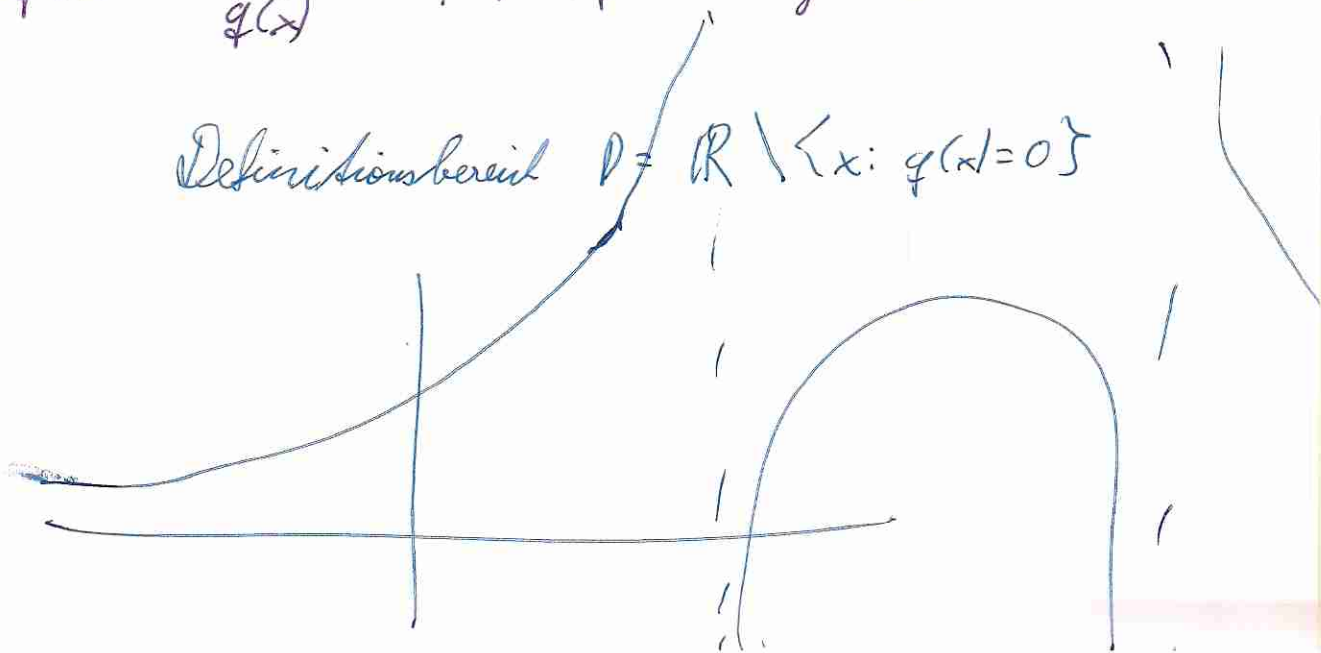 q(x)
Definitionsbereich D = ℝ \ {x: q(x)=0}